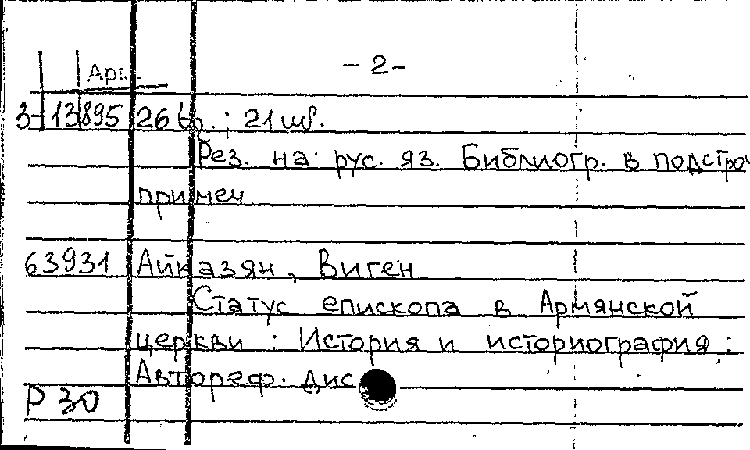 - 2 -
Арм.
3-13895 26 էջ. ; 21 սմ.
Рез. на рус. яз. Библиогр. в подстро
примеч
63931 Айказян, Виген
Статус епископа в Армянской
церкви : История и историография :
Автореф. дис
Р 30